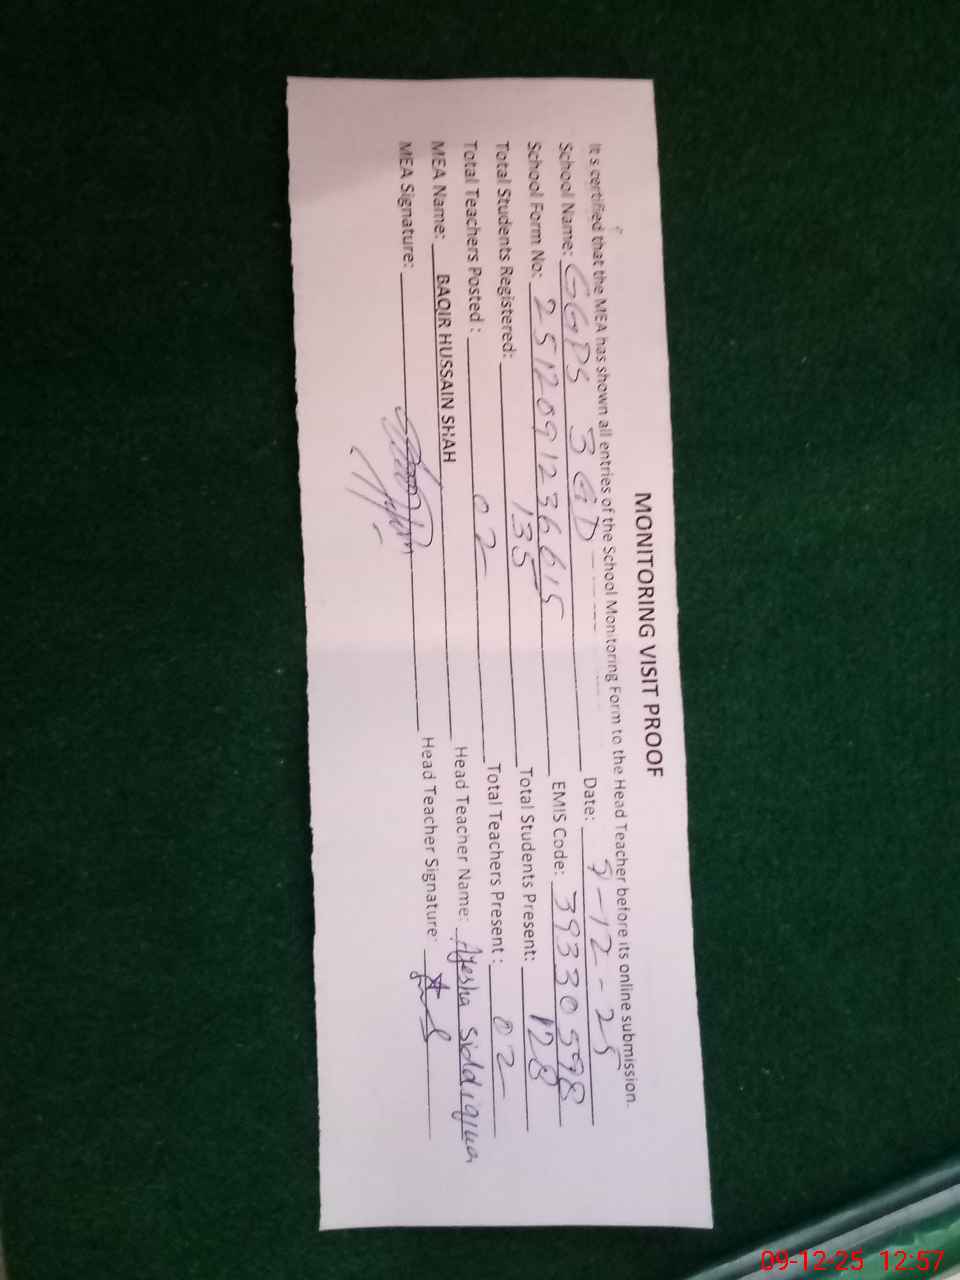 MONITORING VISIT PROOF
It s certified that the MEA has shown all entries of the School Monitoring Form to the Head Teacher before its online submission.
School Name: GGPS 3 GD Date: 9-12-25
School Form No: 2512091236615 EMIS Code: 39330598
Total Students Registered: 135 Total Students Present: 128
Total Teachers Posted : 02 Total Teachers Present : 02
MEA Name: BAQIR HUSSAIN SHAH Head Teacher Name: Ayesha Siddiqua
MEA Signature: Head Teacher Signature:
09-12-25 12:57